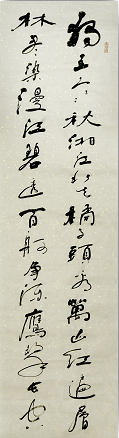 独立寒秋湘江北去橘子头看万山红遍层
林尽染漫江碧透百舸争流鹰击长空